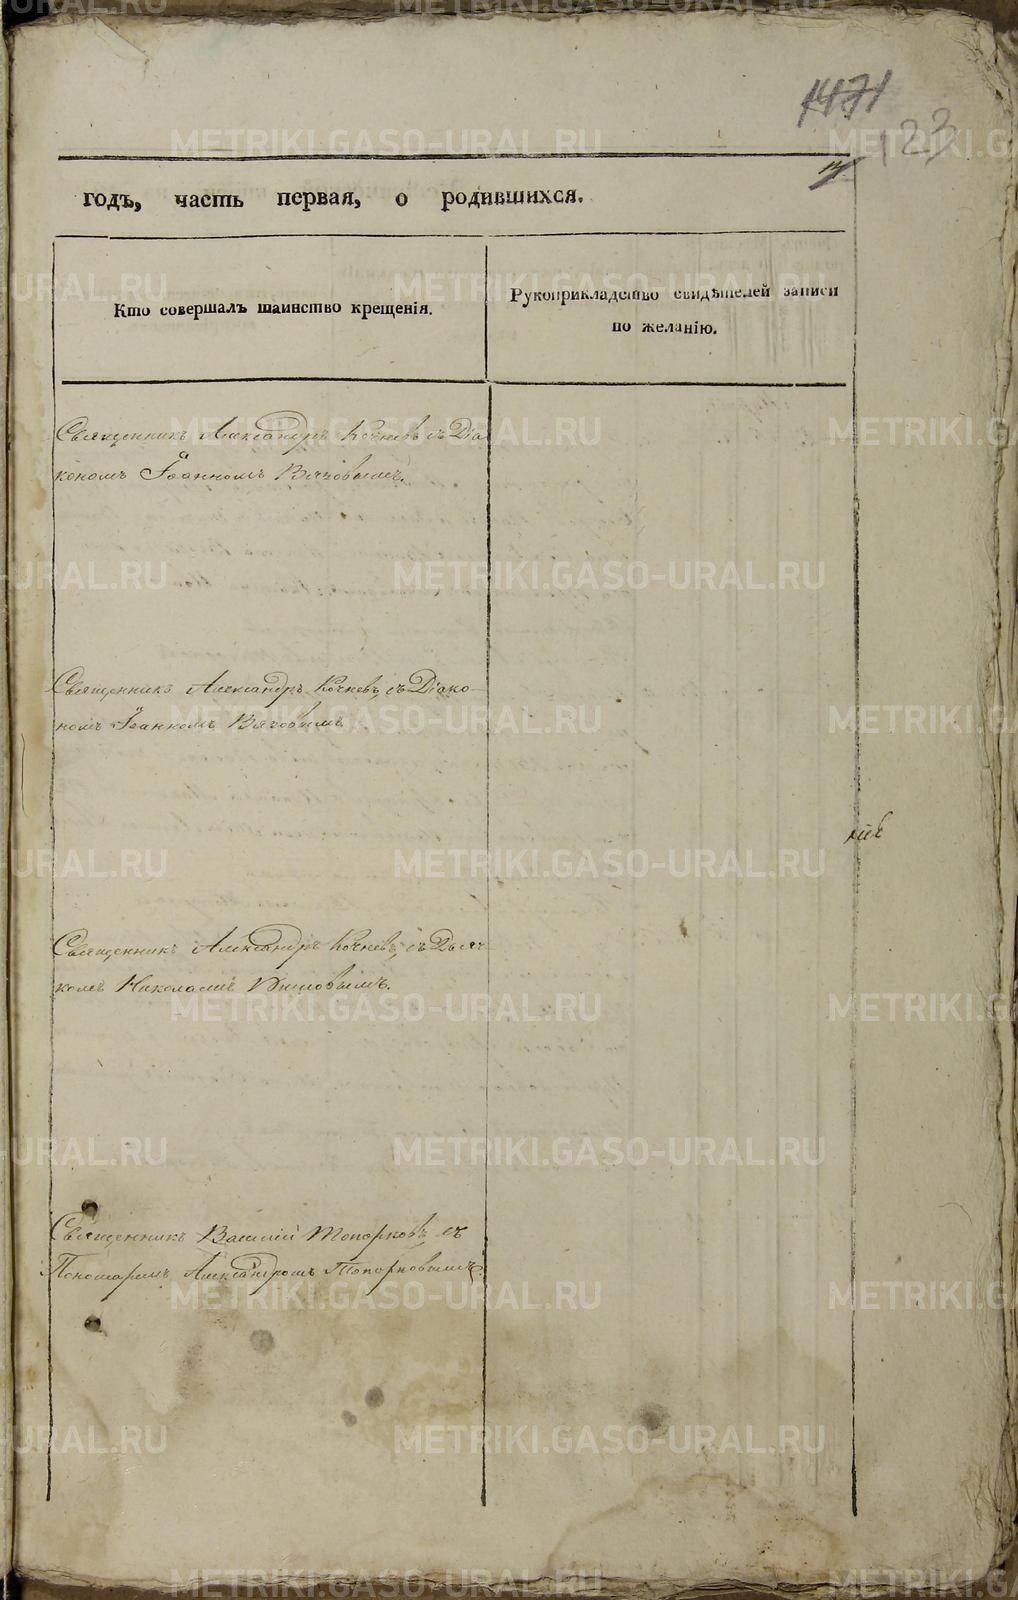 1471
123
годъ, часть первая, о родившихся.
Кто совершалъ таинство крещенія.
Рукоприкладство свидѣтелей записи
по желанію.
Священникъ Александръ Кочневъ съ Діа
кономъ Іоанномъ Вятовымъ.
Священникъ Александръ Кочневъ, съ Діако-
номъ Іоанномъ Вятовымъ.
Священникъ Александръ Кочневъ, съ Дьяч
комъ Николаемъ
Священникъ Василій Топорковъ, съ
Пономаремъ Александромъ Топорковымъ.
METRIKI.GASO-URAL.RU